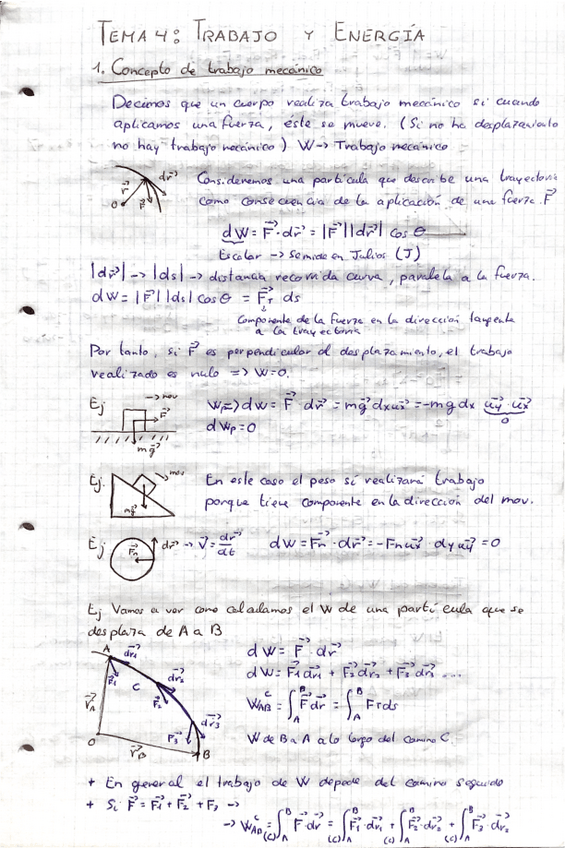 TEMA 4: TRABAJO Y ENERGÍA
1. Concepto de trabajo mecánico
Decimos que un cuerpo realiza trabajo mecánico si cuando
aplicamos una fuerza, éste se mueve. (Si no ha desplazamiento
no hay trabajo mecánico) W → Trabajo mecánico
Consideremos una partícula que describe una trayectoria
como consecuencia de la aplicación de una fuerza F⃗
O r⃗ F⃗ dr⃗
dW = F⃗ · dr⃗ = |F⃗| |dr⃗| cos θ
Escalar → Se mide en Julios (J)
|dr⃗| → |ds| → distancia recorrida curva, paralela a la fuerza.
dW = |F⃗| |ds| cos θ = F⃗T ds
Componente de la fuerza en la dirección tangente
a la trayectoria
Por tanto, si F⃗ es perpendicular al desplazamiento, el trabajo
realizado es nulo => W=0.
Ej → mov F⃗ mg⃗
dW = F⃗ dr⃗ = mg⃗ dx ux⃗ = -mg dx uy⃗ · ux⃗
0
dWp = 0
Ej. mov mg⃗
En este caso el peso sí realizará trabajo
porque tiene componente en la dirección del mov.
Ej F⃗n dr⃗ → v⃗ = dr⃗/dt dW = F⃗n · dr⃗ = -Fn ux⃗ · dy uy⃗ = 0
Ej Vamos a ver como calculamos el W de una partícula que se
desplaza de A a B
A dr⃗1 F⃗1 C dr⃗2 F⃗2 dr⃗3 F⃗3 r⃗A O r⃗B B
dW = F⃗ · dr⃗
dW = F⃗1 dr⃗1 + F⃗2 dr⃗2 + F⃗3 dr⃗3 ...
W^C_AB = ∫_A^B F⃗ dr⃗ = ∫_A^B FT ds
W de B a A a lo largo del camino C.
+ En general el trabajo de W depende del camino seguido
+ Si F⃗ = F⃗1 + F⃗2 + F3 →
→ W^C_AB = (c)∫_A^B F⃗ · dr⃗ = (c)∫_A^B F⃗1 · dr⃗1 + (c)∫_A^B F⃗2 · dr⃗2 + (c)∫_A^B F⃗3 · dr⃗3